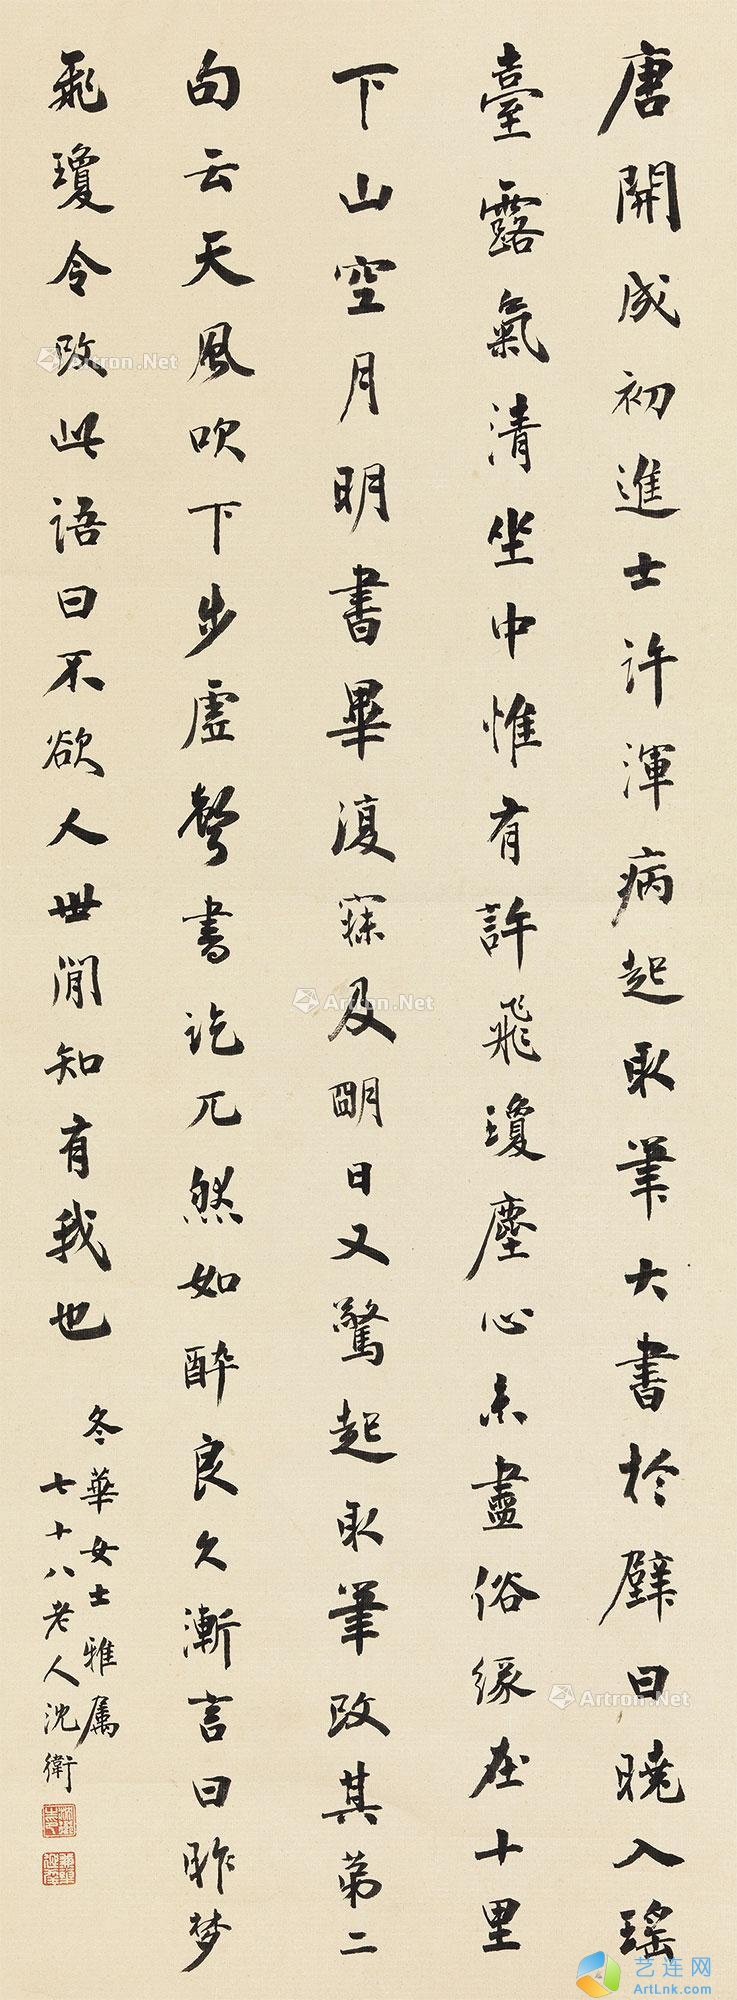 唐開成初進士許渾病起取筆大書於壁曰曉入瑤
臺露氣清坐中惟有許飛瓊塵心未盡俗緣在十里
下山空月明書畢復寐及朙日又驚起取筆改其第二
句云天風吹下步虛聲書訖兀然如醉良久漸言曰昨梦
飛瓊令改此語曰不欲人世間知有我也
冬華女士雅属
七十八老人沈衛
Artron.Net
Artron.Net
Artron.Net
艺连网
ArtLnk.com